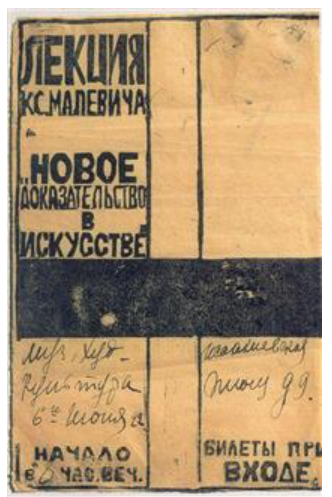 ЛЕКЦИЯ
К.С.МАЛЕВИЧА
„НОВОЕ
ДОКАЗАТЕЛЬСТВО
В
ИСКУССТВЕ"
Муз. Худ-
Культура
6го июня
НАЧАЛО
в час. веч.
БИЛЕТЫ ПРИ
ВХОДЕ.